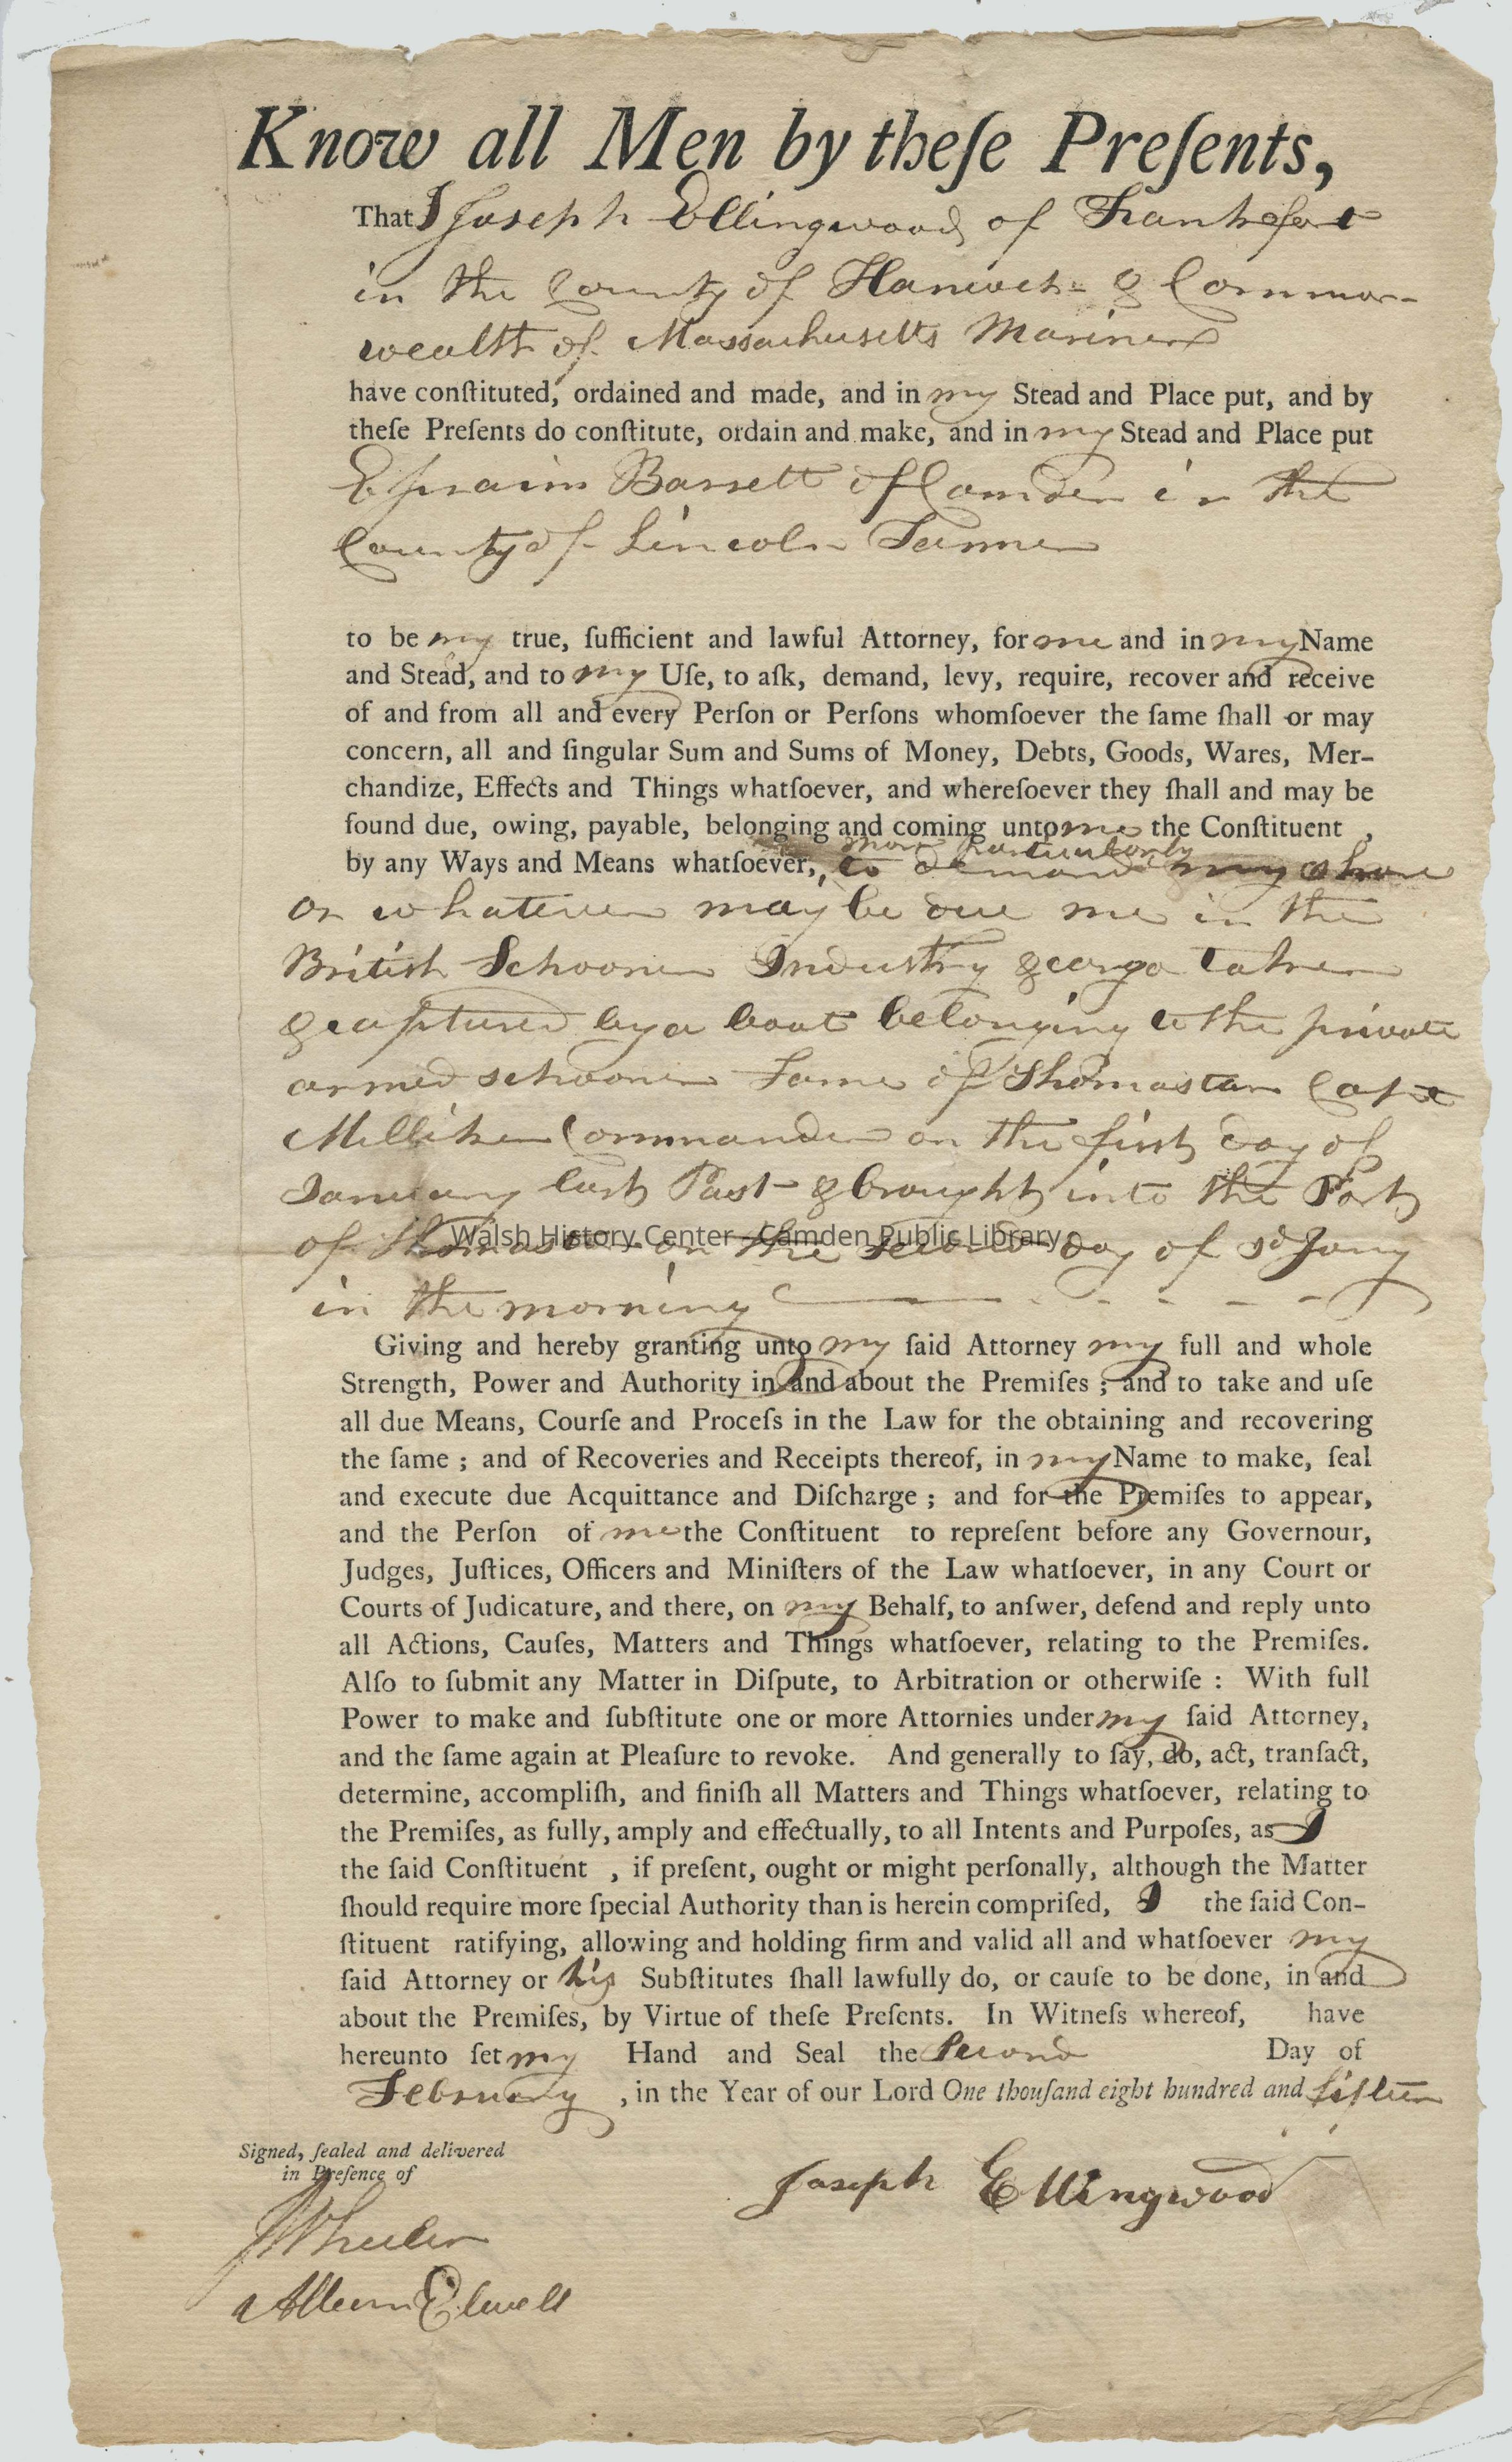 Know all Men by theſe Preſents,
That I Joseph Ellingwood of Frankfort
in the County of Hancock & Common-
wealth of Massachusetts Mariner
have conſtituted, ordained and made, and in my Stead and Place put, and by
theſe Preſents do conſtitute, ordain and make, and in my Stead and Place put
Ephraim Barrett of Camden in the
County of Lincoln Tanner
to be my true, ſufficient and lawful Attorney, for me and in my Name
and Stead, and to my Uſe, to aſk, demand, levy, require, recover and receive
of and from all and every Perſon or Perſons whomſoever the ſame ſhall or may
concern, all and ſingular Sum and Sums of Money, Debts, Goods, Wares, Mer-
chandize, Effects and Things whatſoever, and whereſoever they ſhall and may be
found due, owing, payable, belonging and coming unto me the Conſtituent ,
more particularly
by any Ways and Means whatſoever, to demand my share
or whatever may be due me in the
British Schooner Industry & cargo taken
& captured by a boat belonging to the private
armed schooner Fame of Thomaston Capt
Milliken Commander on the first day of
January last Past & brought into the Port
of Thomaston on the second day of sd Jany
Walsh History Center - Camden Public Library
in the morning
Giving and hereby granting unto my ſaid Attorney my full and whole
Strength, Power and Authority in and about the Premiſes ; and to take and uſe
all due Means, Courſe and Proceſs in the Law for the obtaining and recovering
the ſame ; and of Recoveries and Receipts thereof, in my Name to make, ſeal
and execute due Acquittance and Diſcharge ; and for the Premiſes to appear,
and the Perſon of me the Conſtituent to repreſent before any Governour,
Judges, Juſtices, Officers and Miniſters of the Law whatſoever, in any Court or
Courts of Judicature, and there, on my Behalf, to anſwer, defend and reply unto
all Actions, Cauſes, Matters and Things whatſoever, relating to the Premiſes.
Alſo to ſubmit any Matter in Diſpute, to Arbitration or otherwiſe : With full
Power to make and ſubſtitute one or more Attornies under my ſaid Attorney,
and the ſame again at Pleaſure to revoke. And generally to ſay, do, act, tranſact,
determine, accompliſh, and finiſh all Matters and Things whatſoever, relating to
the Premiſes, as fully, amply and effectually, to all Intents and Purpoſes, as I
the ſaid Conſtituent , if preſent, ought or might perſonally, although the Matter
ſhould require more ſpecial Authority than is herein compriſed, I the ſaid Con-
ſtituent ratifying, allowing and holding firm and valid all and whatſoever my
ſaid Attorney or his Subſtitutes ſhall lawfully do, or cauſe to be done, in and
about the Premiſes, by Virtue of theſe Preſents. In Witneſs whereof, have
hereunto ſet my Hand and Seal the Second Day of
February , in the Year of our Lord One thouſand eight hundred and fifteen
Signed, ſealed and delivered
in Preſence of
Joseph Ellingwood
J Wheeler
Elwell